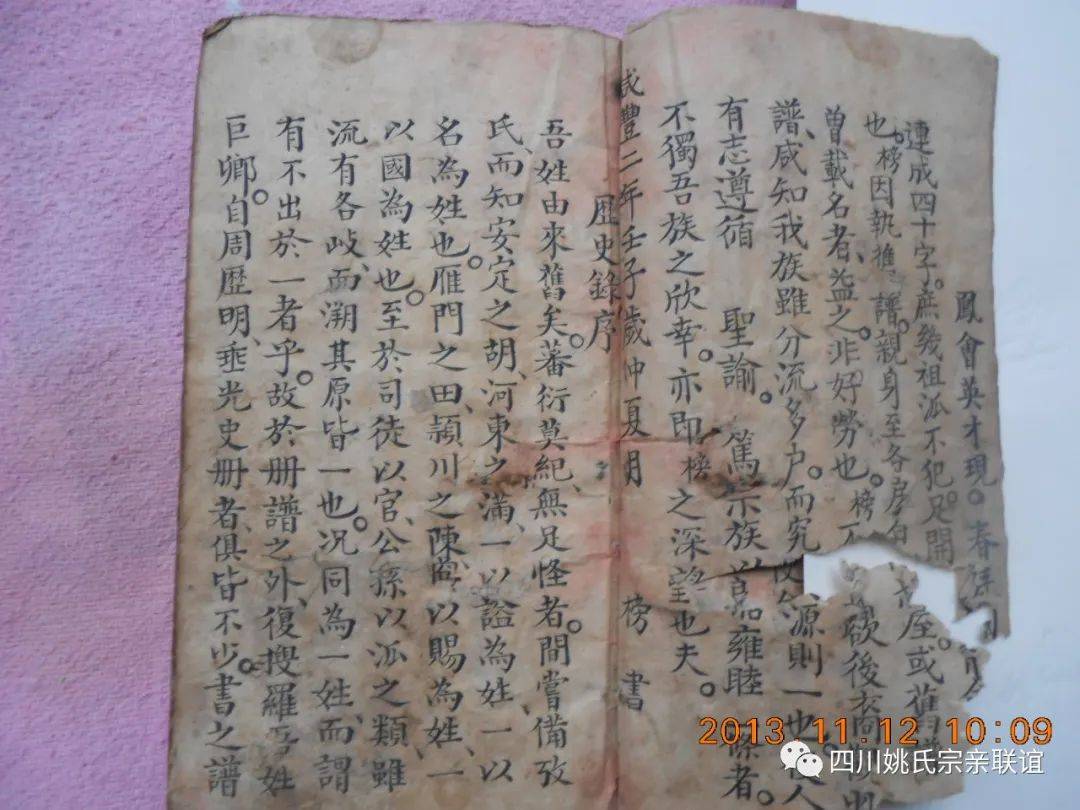 鳳會英才現。春
連成四十字。庶幾祖派不犯。足開
也。榜因執推 譜。親身至各房
屋。或舊
曾載名者、益之。非好勞也。榜
欲後裔
譜、咸知我族雖分流多户。而究 源則一也。 人
有志遵循 聖諭。篤宗族以昭雍睦 者。
不獨吾族之欣幸。亦即榜之深望也夫。
咸豐二年壬子歲仲夏月 榜 書
歷史錄序
吾姓由來舊矣。蕃衍莫紀、無足怪者。間嘗備攷
氏、而知安定之胡、河東之滿、一以謚為姓、一以
名為姓也。雁門之田、頴川之陳、 以賜為姓、一
以國為姓也。至於司徒以官、公孫以派之類、雖
流有各岐、而溯其原皆一也。況同為一姓、而謂
有不出於一者乎。故於册譜之外、復搜羅吾姓
巨卿。自周歷明、垂光史册者、俱皆不少。書之譜
2013.11.12 10:09
四川姚氏宗亲联谊